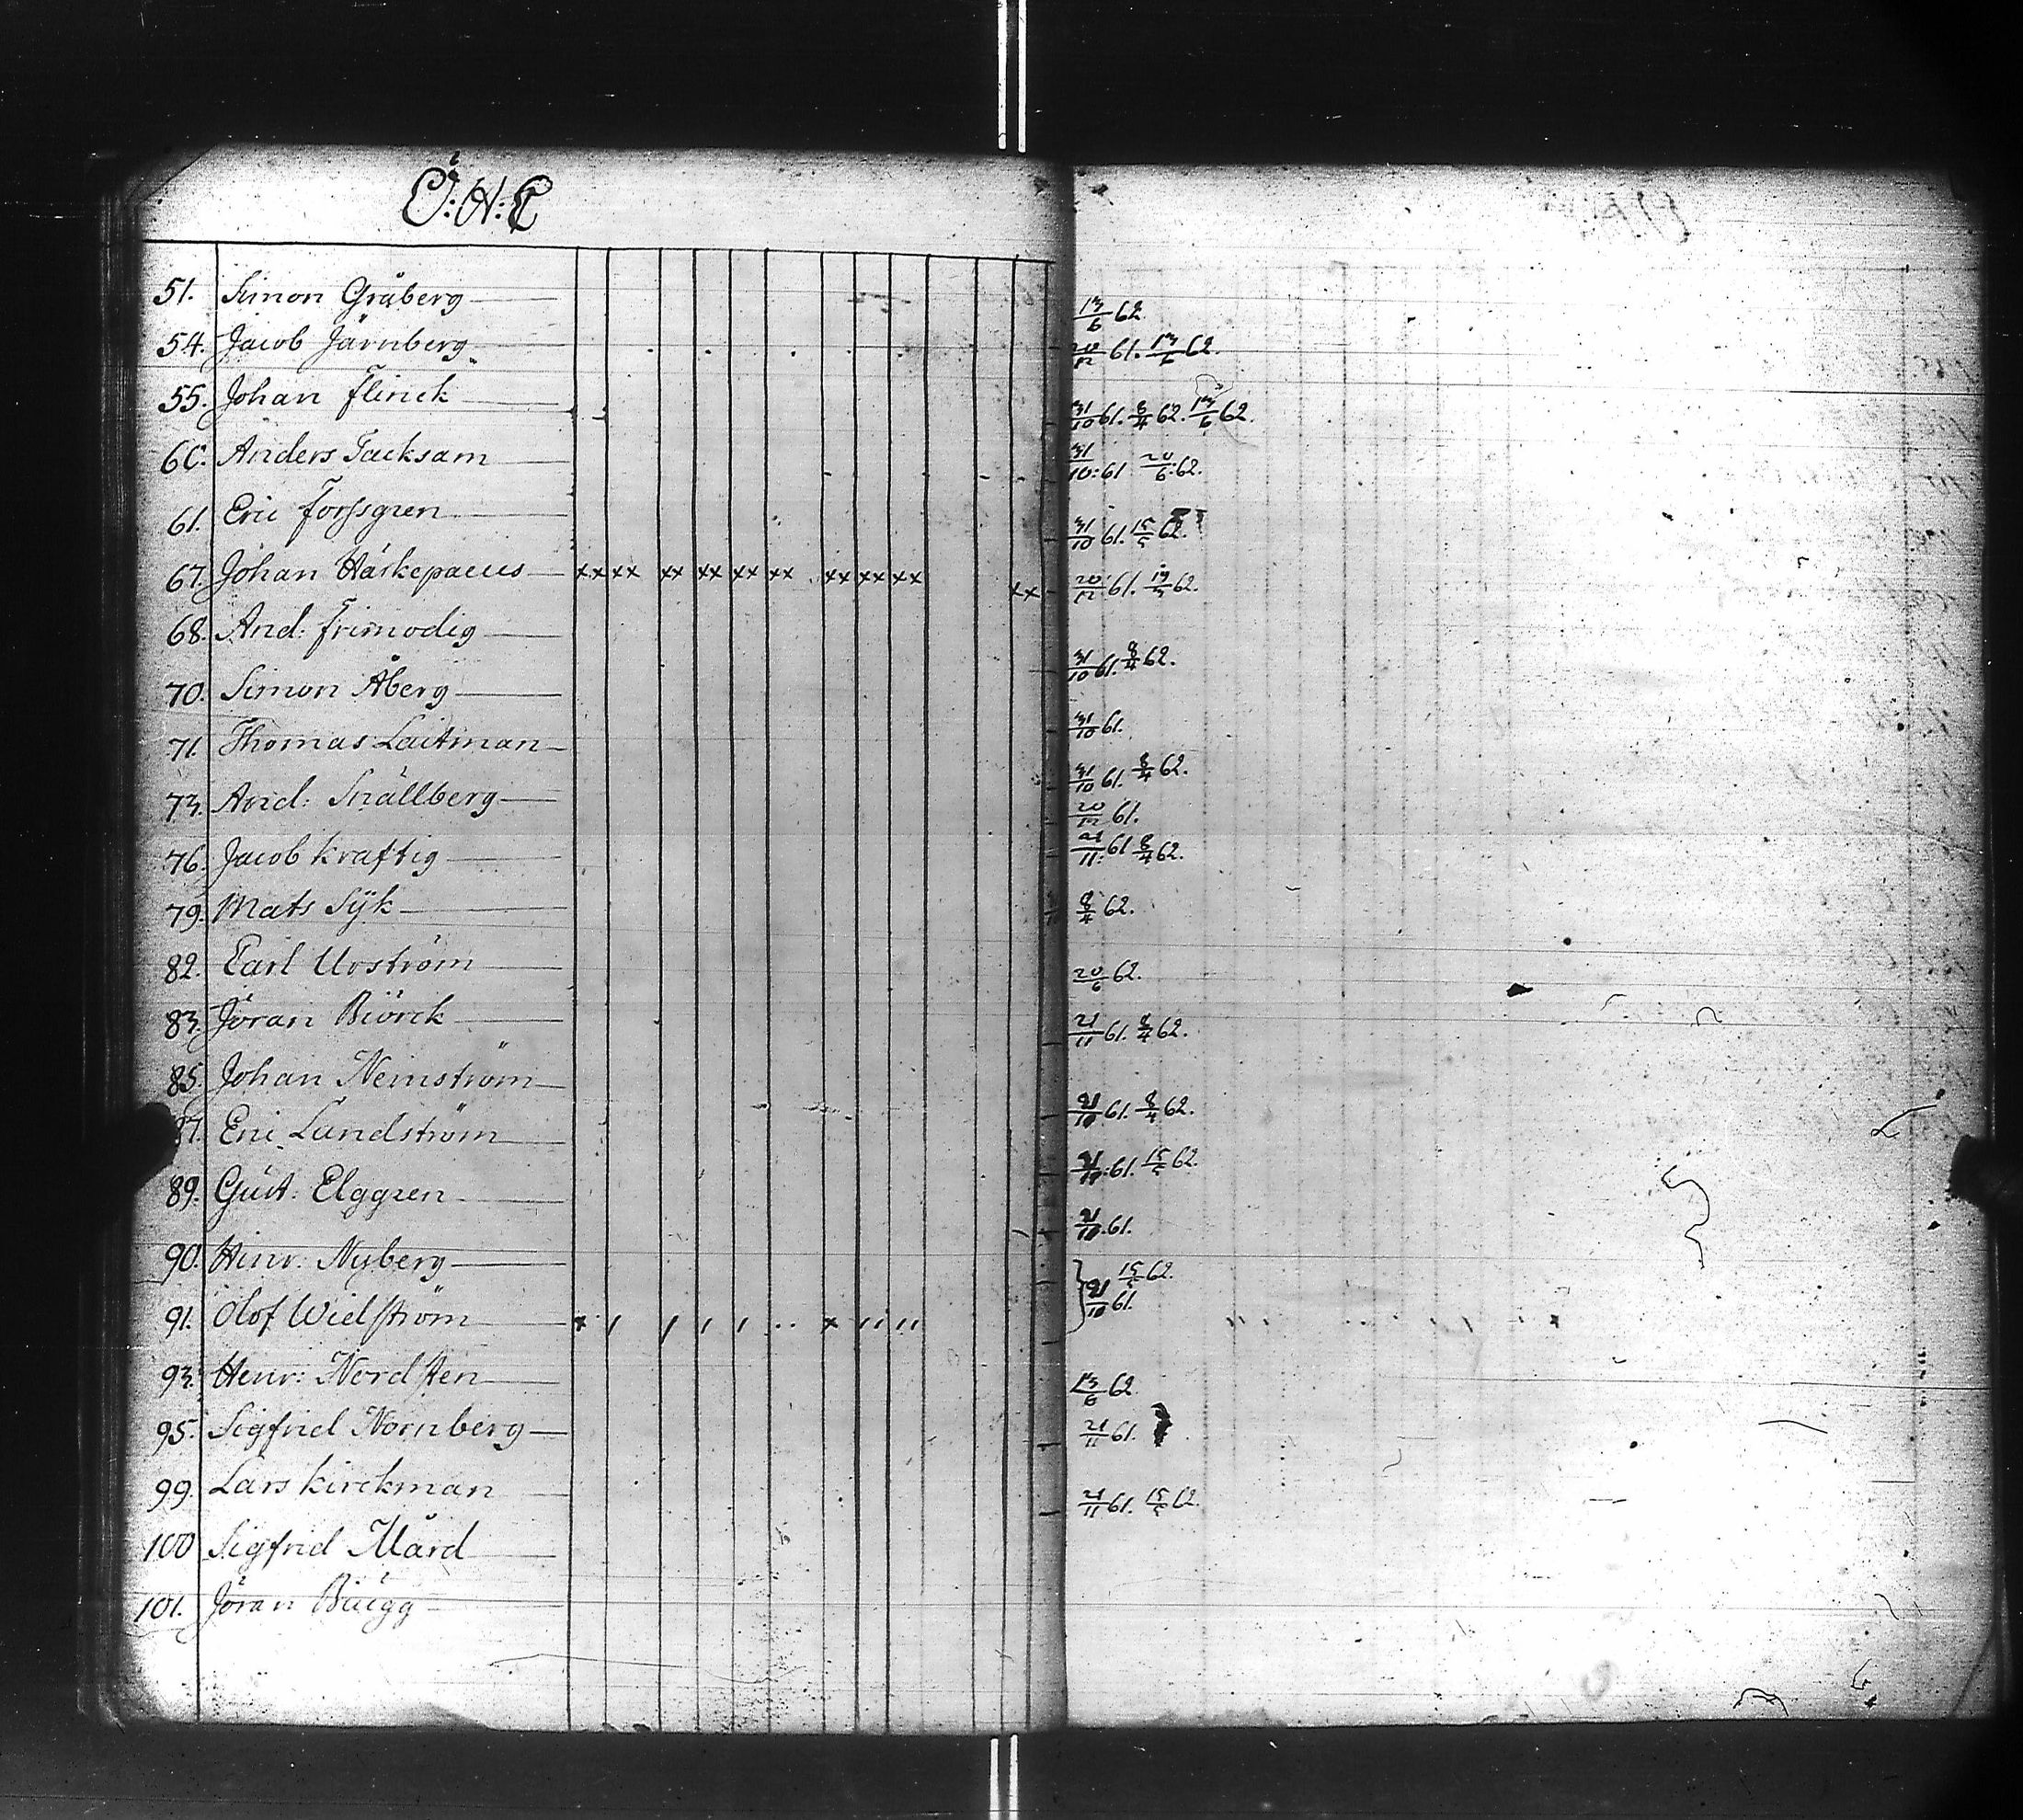 Ö:H:C
51. Simon Gråberg 13/6 62.
54. Jacob Järnberg 20/12 61. 13/6 62.
55. Johan Flinck 31/10 61. 8/4 62. 13/6 62.
60. Anders Tacksam 31/10: 61 20/6: 62.
61. Eric Forssgren 31/10 61. 15/5 62.
67. Johan Häskepaeus xx xx xx xx xx xx xx xx xx xx 20/12 61. 62.
68. And: Frimodig 31/10 61. 8/4 62.
70. Simon Åberg 31/10 61.
71. Thomas Laitman 31/10 61. 8/4 62.
73. And: Snällberg 20/12 61.
76. Jacob Kraftig 21/11: 61 8/4 62.
79. Mats Sÿk 8/4 62.
82. Carl Urström 20/6 62.
83. Jöran Biörck 21/11 61. 8/4 62.
85. Johan Nemström 31/10 61. 8/4 62.
87. Eric Lundström 61. 15/5 62.
89. Gust: Elggren 61.
90. Hinr: Nyberg 15/5 62.
91. Olof Wielström 61.
93. Henr: Nordsten 13/6 62
95. Sigfrid Nornberg 21/11 61.
99. Lars Kirckman 21/11 61. 15/5 62.
100 Sigfrid Mård
101. Jöran Bäugg